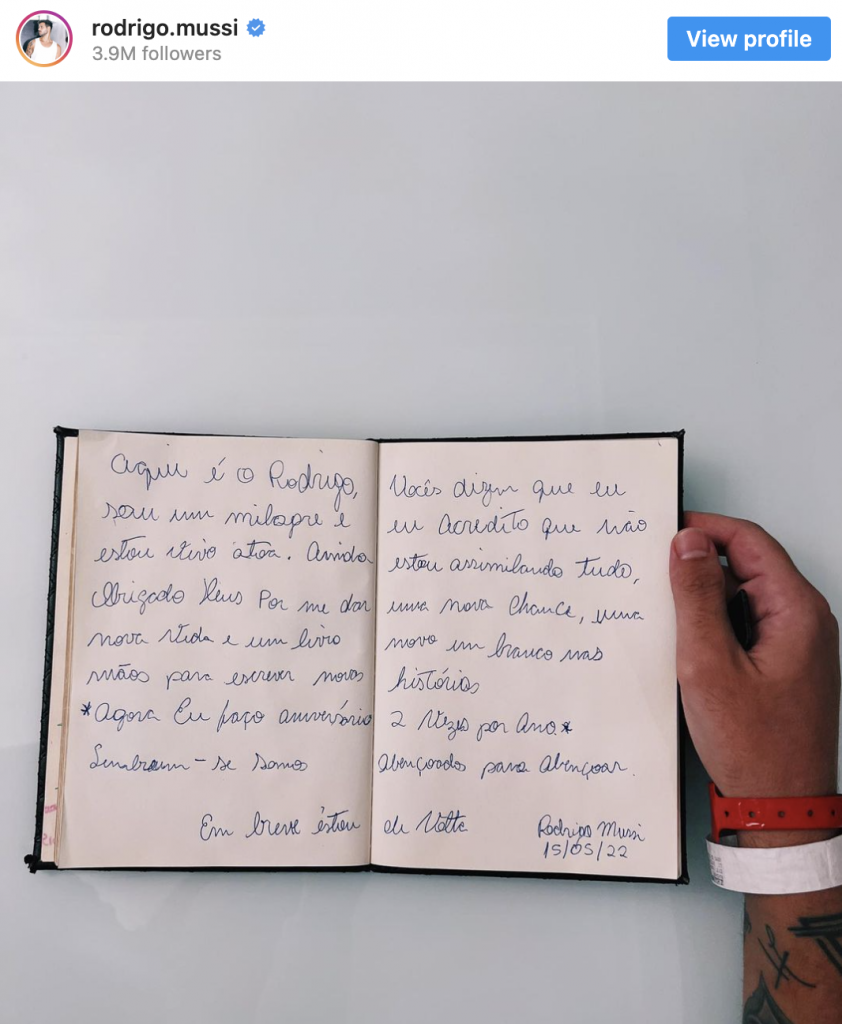 rodrigo.mussi
3.9M followers
View profile
Aqui é o Rodrigo, Vocês dizem que eu
sou um milagre e eu Acredito que não
estou vivo atoa. Ainda estou assimilando tudo,
Obrigado Deus Por me dar uma nova Chance, uma
nova vida e um livro novo em branco nas
mãos para escrever novas histórias
*Agora Eu faço aniversário 2 Vezes por Ano*
Lembrem-se somos Abençoados para Abençoar.
Em breve éstou de Volta
Rodrigo Mussi
15/05/22